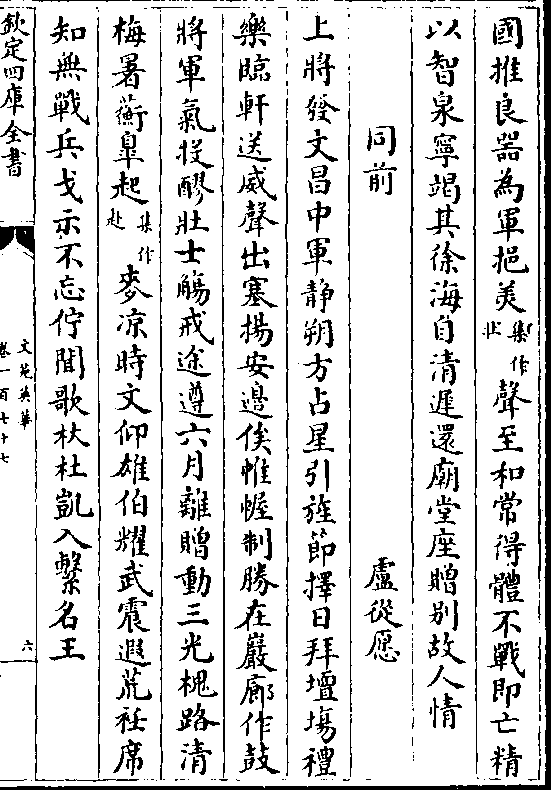 國推良器為軍挹美集作壯聲至和常得體不戰即亡精
以智泉寧竭其徐海自清遲還廟堂座贈別故人情
同前 盧從愿
上將發文昌中軍静朔方占星引旌節擇日拜壇塲禮
樂臨軒送威聲出塞揚安邊俟帷幄制勝在巖廊作鼓
將軍氣投醪壯士觴戒途遵六月離贈動三光槐路清
梅署蘅臯起集作赴麥凉時文仰雄伯耀武震遐荒衽席
知無戰兵戈示不忘佇聞歌杕杜凱入繫名王
欽定四庫全書
文苑英華
卷一百七十七
六